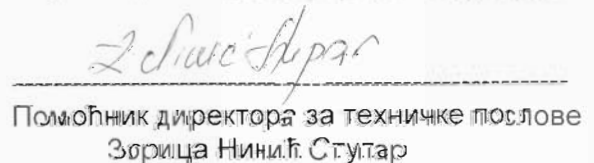 Помоћник директора за техничке послове
Зорица Нинић Стутар